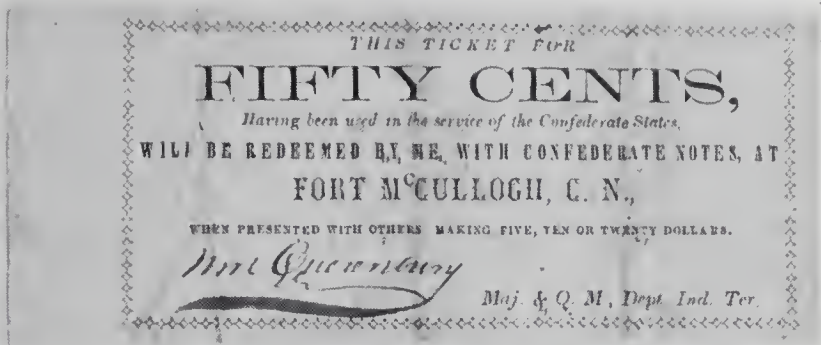 THIS TICKET FOR
FIFTY CENTS,
Having been used in the service of the Confederate States,
WILL BE REDEEMED BY ME, WITH CONFEDERATE NOTES, AT
FORT McCULLOGH, C. N.,
WHEN PRESENTED WITH OTHERS MAKING FIVE, TEN OR TWENTY DOLLARS.
Wm Quesenbury
Maj. & Q. M, Dept. Ind. Ter.